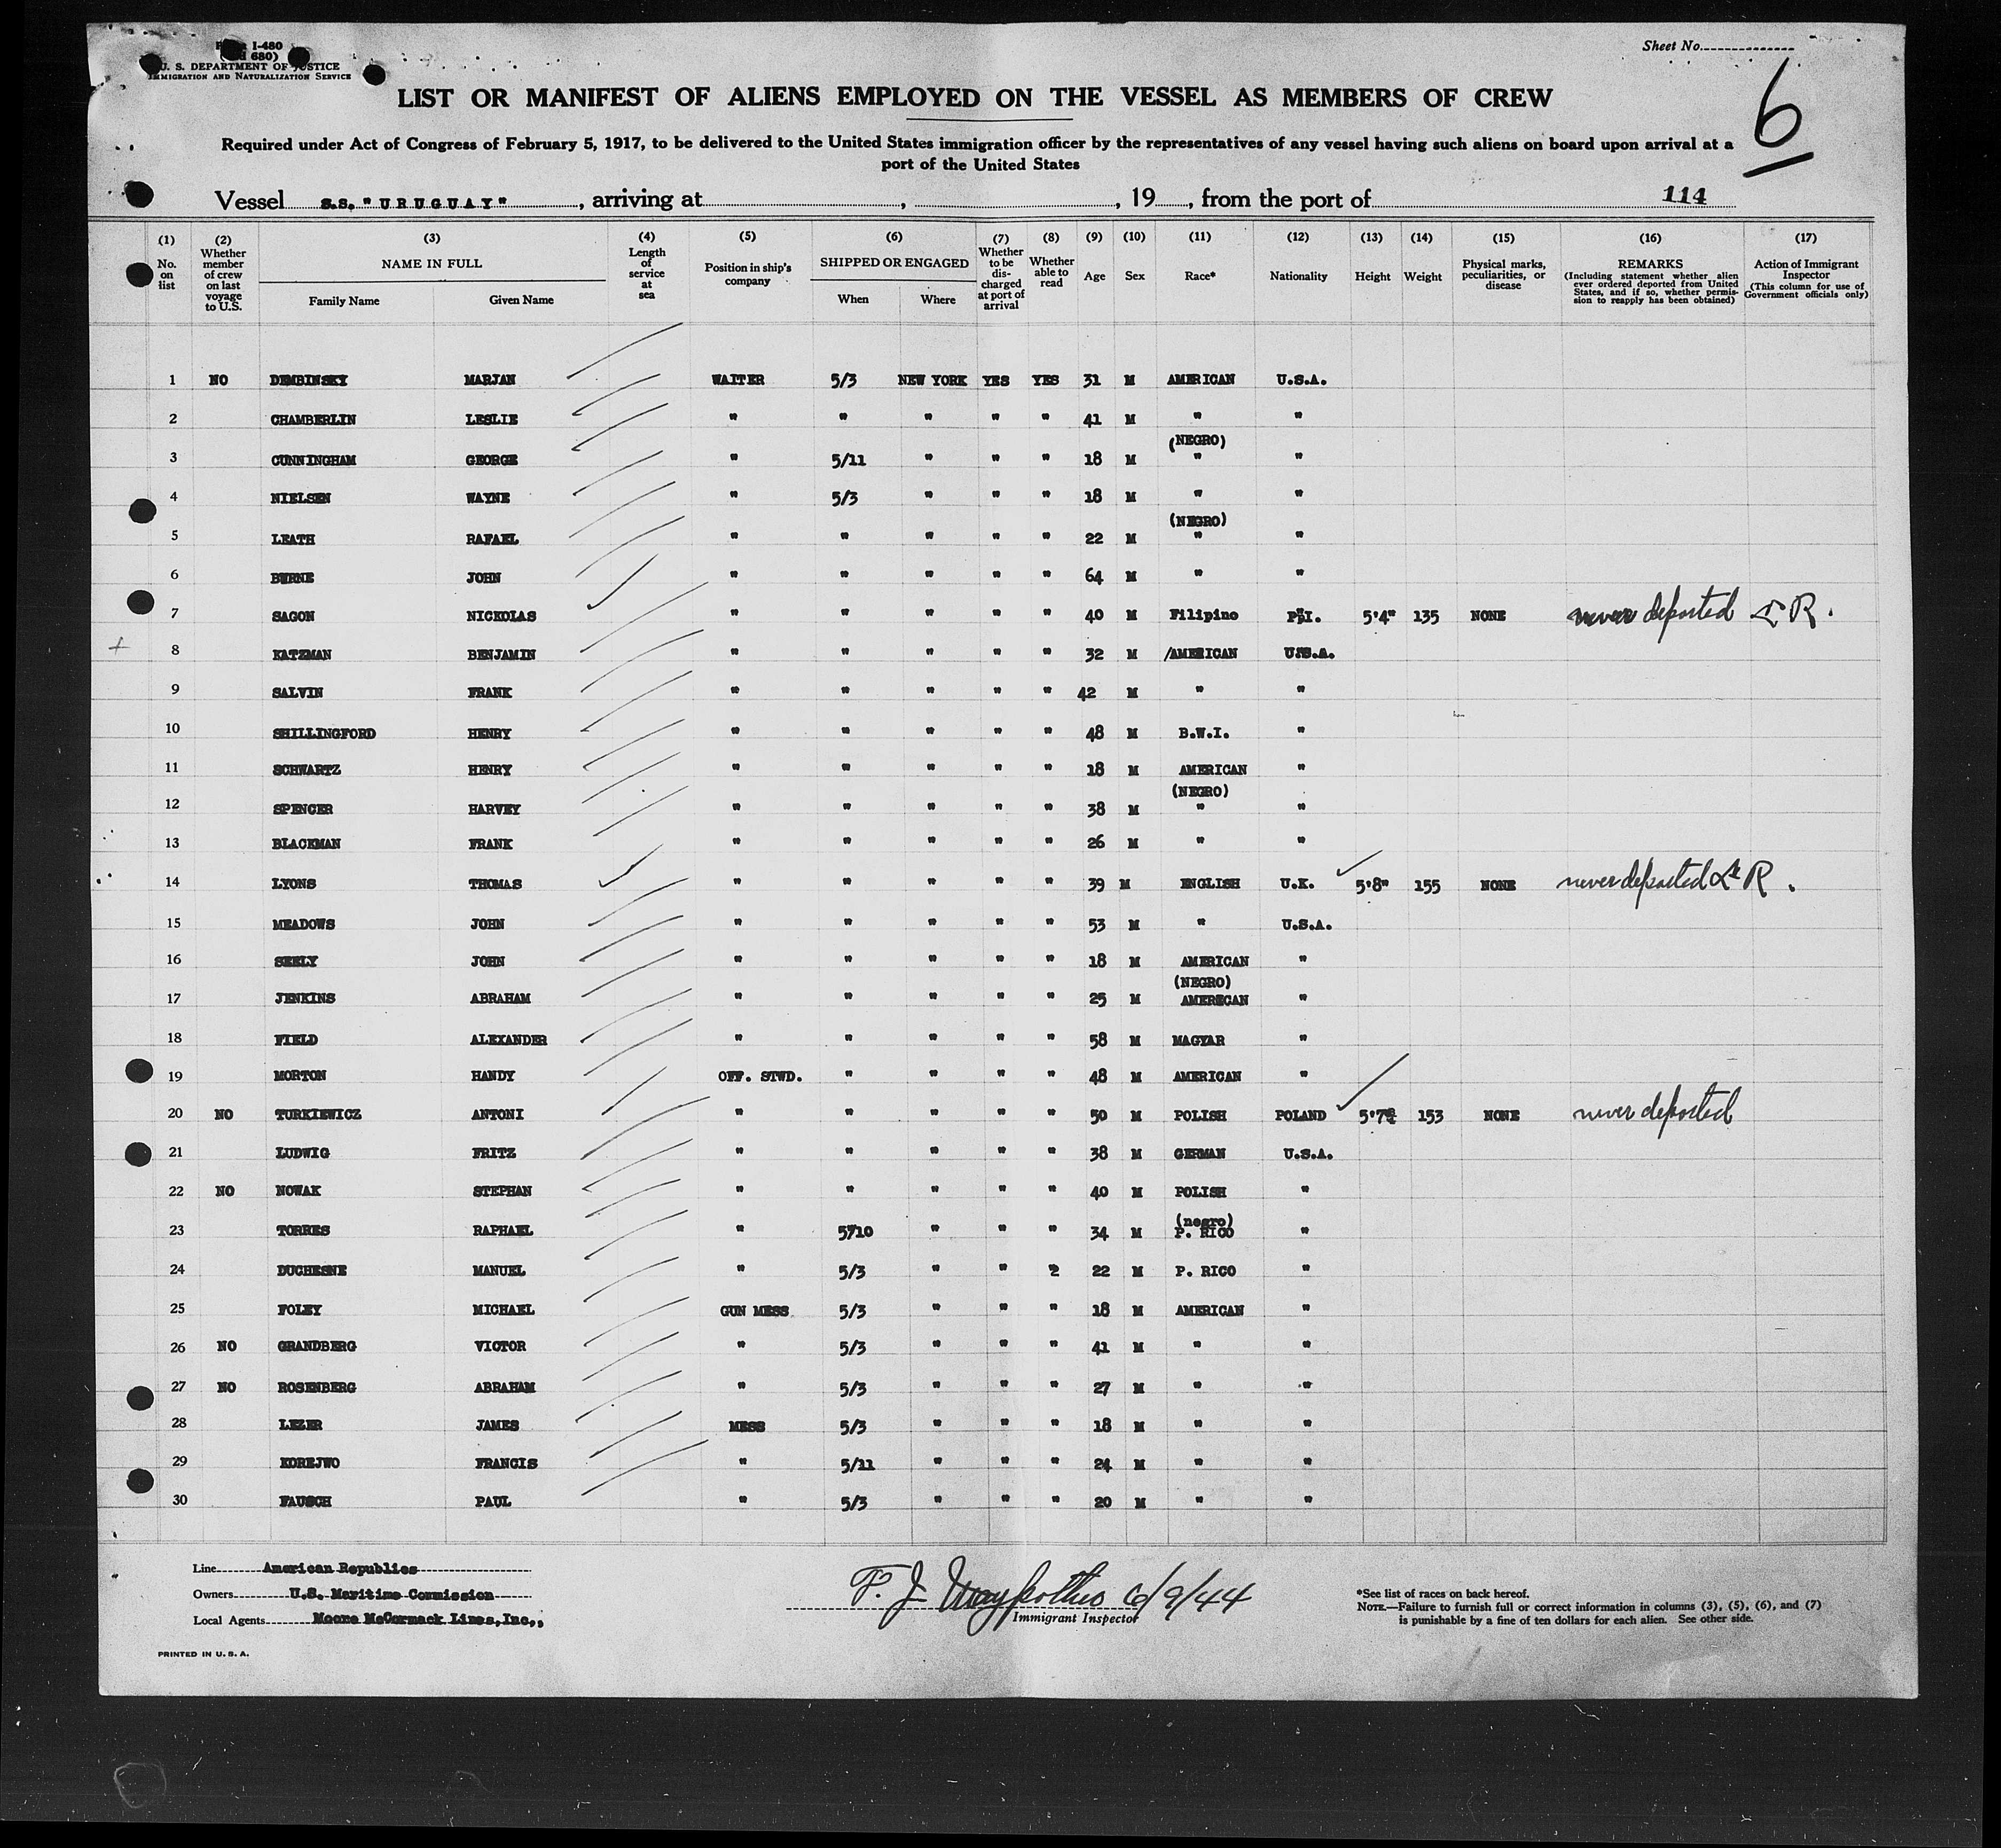 I-480
680)
U. S. DEPARTMENT OF JUSTICE
IMMIGRATION AND NATURALIZATION SERVICE
Sheet No.
6
LIST OR MANIFEST OF ALIENS EMPLOYED ON THE VESSEL AS MEMBERS OF CREW
Required under Act of Congress of February 5, 1917, to be delivered to the United States immigration officer by the representatives of any vessel having such aliens on board upon arrival at a
port of the United States
Vessel S.S. "URUGUAY", arriving at , , 19 , from the port of 114
(1) No. on list (2) Whether member of crew on last voyage to U.S. (3) NAME IN FULL Family Name Given Name (4) Length of service at sea (5) Position in ship's company (6) SHIPPED OR ENGAGED When Where (7) Whether to be discharged at port of arrival (8) Whether able to read (9) Age (10) Sex (11) Race* (12) Nationality (13) Height (14) Weight (15) Physical marks, peculiarities, or disease (16) REMARKS (Including statement whether alien ever ordered deported from United States, and if so, whether permission to reapply has been obtained) (17) Action of Immigrant Inspector (This column for use of Government officials only)
1 NO DEMBINSKY MARJAN WAITER 5/3 NEW YORK YES YES 31 M AMERICAN U.S.A.
2 CHAMBERLIN LESLIE " " " " " 41 M " "
3 CUNNINGHAM GEORGE " 5/11 " " " 18 M (NEGRO) " "
4 NIELSEN WAYNE " 5/3 " " " 18 M " "
5 LEATH RAFAEL " " " " " 22 M (NEGRO) " "
6 BYRNE JOHN " " " " " 64 M " "
7 SAGON NICKOLAS " " " " " 40 M Filipino P.I. 5'4" 135 NONE never deported R.
8 KATZMAN BENJAMIN " " " " " 32 M /AMERICAN U.S.A.
9 SALVIN FRANK " " " " " 42 M " "
10 SHILLINGFORD HENRY " " " " " 48 M B.W.I. "
11 SCHWARTZ HENRY " " " " " 18 M AMERICAN "
12 SPENCER HARVEY " " " " " 38 M (NEGRO) " "
13 BLACKMAN FRANK " " " " " 26 M " "
14 LYONS THOMAS " " " " " 39 M ENGLISH U.K. 5'8" 155 NONE never deported R.
15 MEADOWS JOHN " " " " " 53 M " U.S.A.
16 SEELY JOHN " " " " " 18 M AMERICAN "
17 JENKINS ABRAHAM " " " " " 25 M (NEGRO) AMERICAN "
18 FIELD ALEXANDER " " " " " 58 M MAGYAR "
19 MORTON HANDY OFF. STWD. " " " " 48 M AMERICAN "
20 NO TURKIEWICZ ANTONI " " " " " 50 M POLISH POLAND 5'7 153 NONE never deported
21 LUDWIG FRITZ " " " " " 38 M GERMAN U.S.A.
22 NO NOWAK STEPHAN " " " " " 40 M POLISH "
23 TORRES RAPHAEL " 5/10 " " " 34 M (negro) P. RICO "
24 DUCHESNE MANUEL " 5/3 " " 2 22 M P. RICO "
25 FOLEY MICHAEL GUN MESS 5/3 " " " 18 M AMERICAN "
26 NO GRANDBERG VICTOR " 5/3 " " " 41 M " "
27 NO ROSENBERG ABRAHAM " 5/3 " " " 27 M " "
28 LEZER JAMES MESS 5/3 " " " 18 M " "
29 KOREJWO FRANCIS " 5/11 " " " 24 M " "
30 FAUSCH PAUL " 5/3 " " " 20 M " "
Line American Republics
Owners U.S. Maritime Commission
Local Agents Moore McCormack Lines, Inc.,
F. J. 6/9/44
Immigrant Inspector
*See list of races on back hereof.
NOTE.—Failure to furnish full or correct information in columns (3), (5), (6), and (7)
is punishable by a fine of ten dollars for each alien. See other side.
PRINTED IN U. S. A.